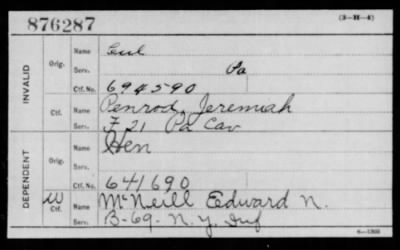 876287 (3-H-4)
INVALID
Orig.
Name Gul
Serv. Pa
Ctf. No. 694590
Ctf.
Name Penrod, Jeremiah
Serv. F 21 Pa Cav
DEPENDENT
Orig.
Name Hen
Serv.
Ctf. No. 641690
W
Ctf.
Name McNeill Edward N.
Serv. B-69-N.Y. Inf